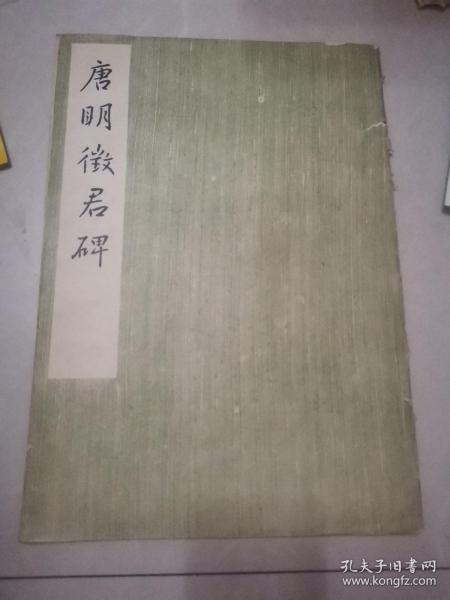 唐明徵君碑
孔夫子旧书网
www.kongfz.com